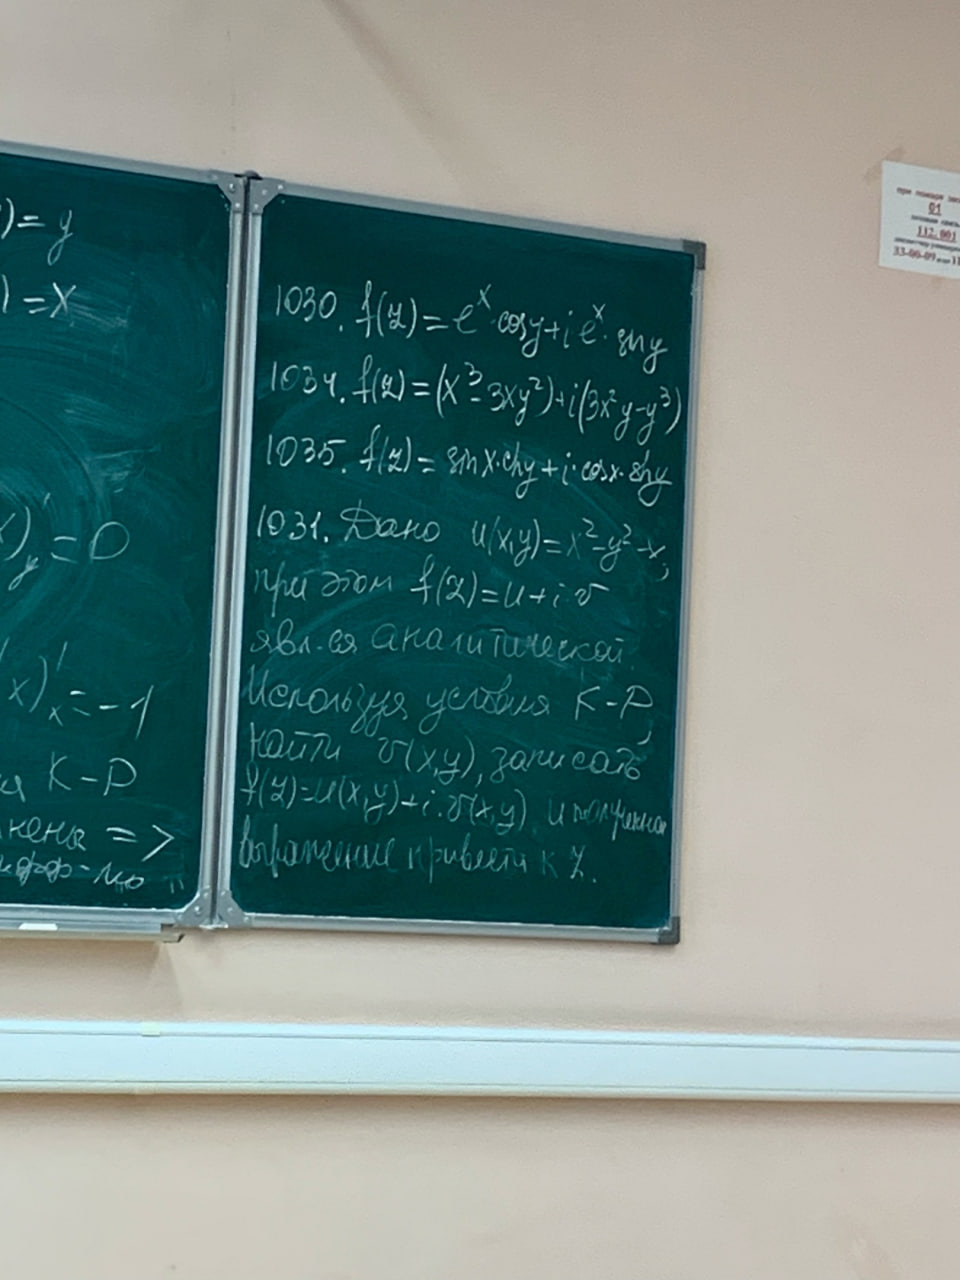 )=y
)=x
x)'y=0
x)'x=-1
ия К-Р
нены =>
1030. f(z)=e^x·cosy+i e^x·siny
1034. f(z)=(x^3-3xy^2)+i(3x^2y-y^3)
1035. f(z)= sinx·chy+i·cosx·shy
1031. Дано u(x,y)=x^2-y^2-x,
при этом f(z)=u+iv
явл.ся аналитической.
Используя условия К-Р,
найти v(x,y), записать
f(z)=u(x,y)+i·v(x,y) и полученное
выражение привести к z.
при пожаре
01
112, 001
33-06-09 или 11